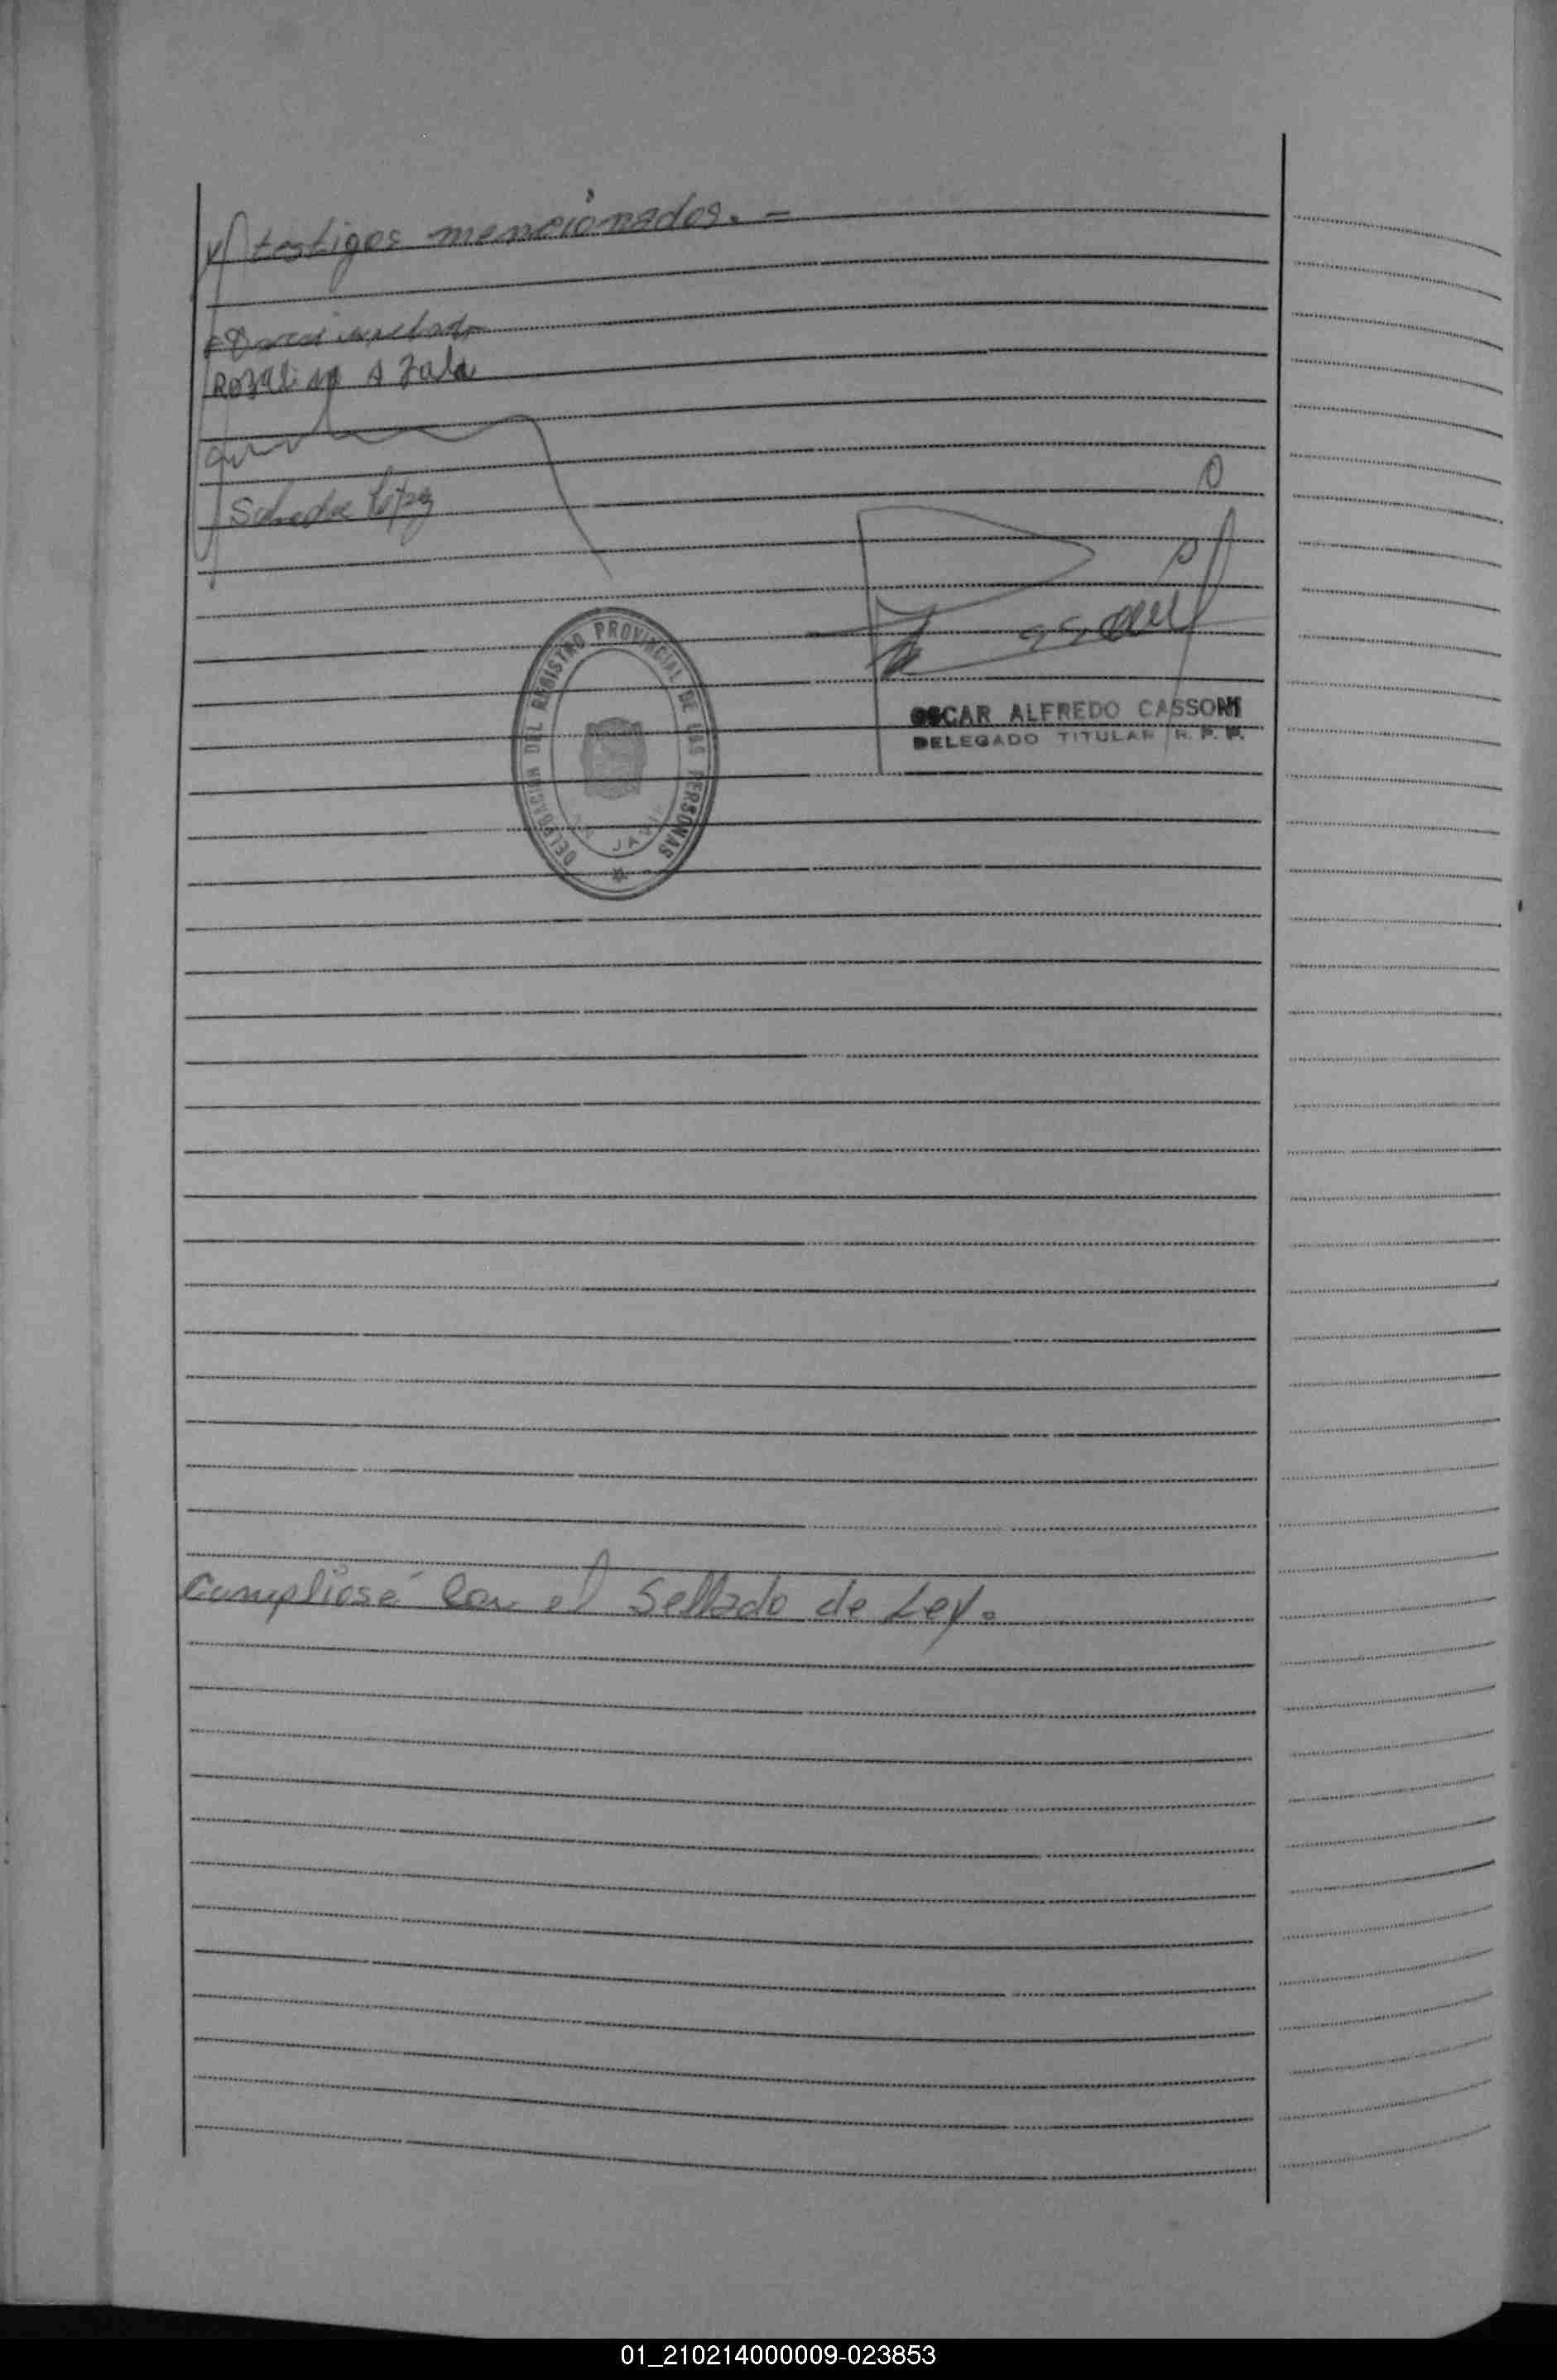 y testigos mencionados. =
Rozalina A Zala
Salvador López
DELEGACION DEL REGISTRO PROVINCIAL DE LAS PERSONAS
JAVI
OSCAR ALFREDO CASSONI
DELEGADO TITULAR R. P. P.
Cumpliosé con el Sellado de Ley.
01_210214000009-023853